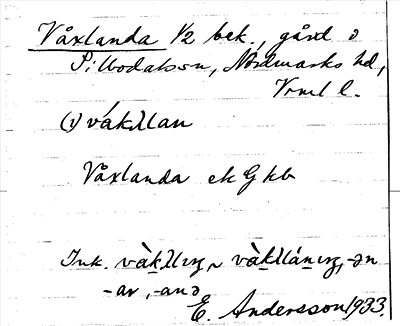 Våxlanda 1/2 bek., gård i
Silbodals sn, Nordmarks hd,
Vrml l.
(1) våkλlan
Våxlanda ek Gkb
Ink. vàkλiŋ ~ vàkλlániŋ, -ən
-ar, -anə
E. Andersson 1933.